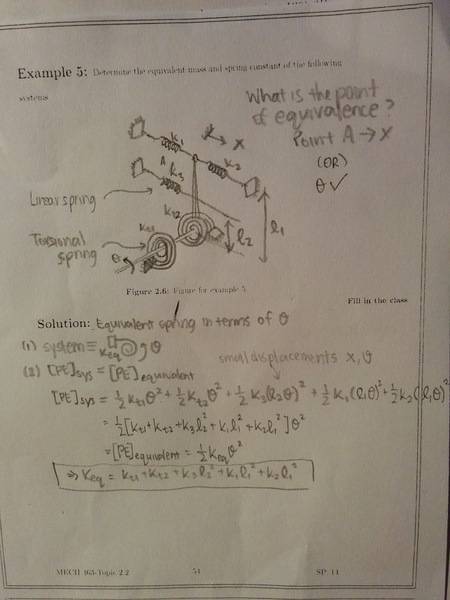 Example 5: Determine the equivalent mass and spring constant of the following
systems
What is the point
of equivalence?
Point A → x
(OR)
θ ✓
k₁
x
A
k₃
k₂
Linear spring
kt2
kt1
l₂
l₁
Torsional
spring
θ
Figure 2.6: Figure for example 5
Fill in the class
Solution: Equivalent spring in terms of θ
(1) system ≡ keq θ
small displacements x, θ
(2) [PE]sys = [PE]equivalent
[PE]sys = ½kt1θ² + ½kt2θ² + ½k₃(l₂θ)² + ½k₁(l₁θ)² + ½k₂(l₁θ)²
= ½[kt1 + kt2 + k₃l₂² + k₁l₁² + k₂l₁²]θ²
= [PE]equivalent = ½keqθ²
⇒ Keq = kt1 + kt2 + k₃l₂² + k₁l₁² + k₂l₁²
MECH 463-Topic 2.2
54
SP 14